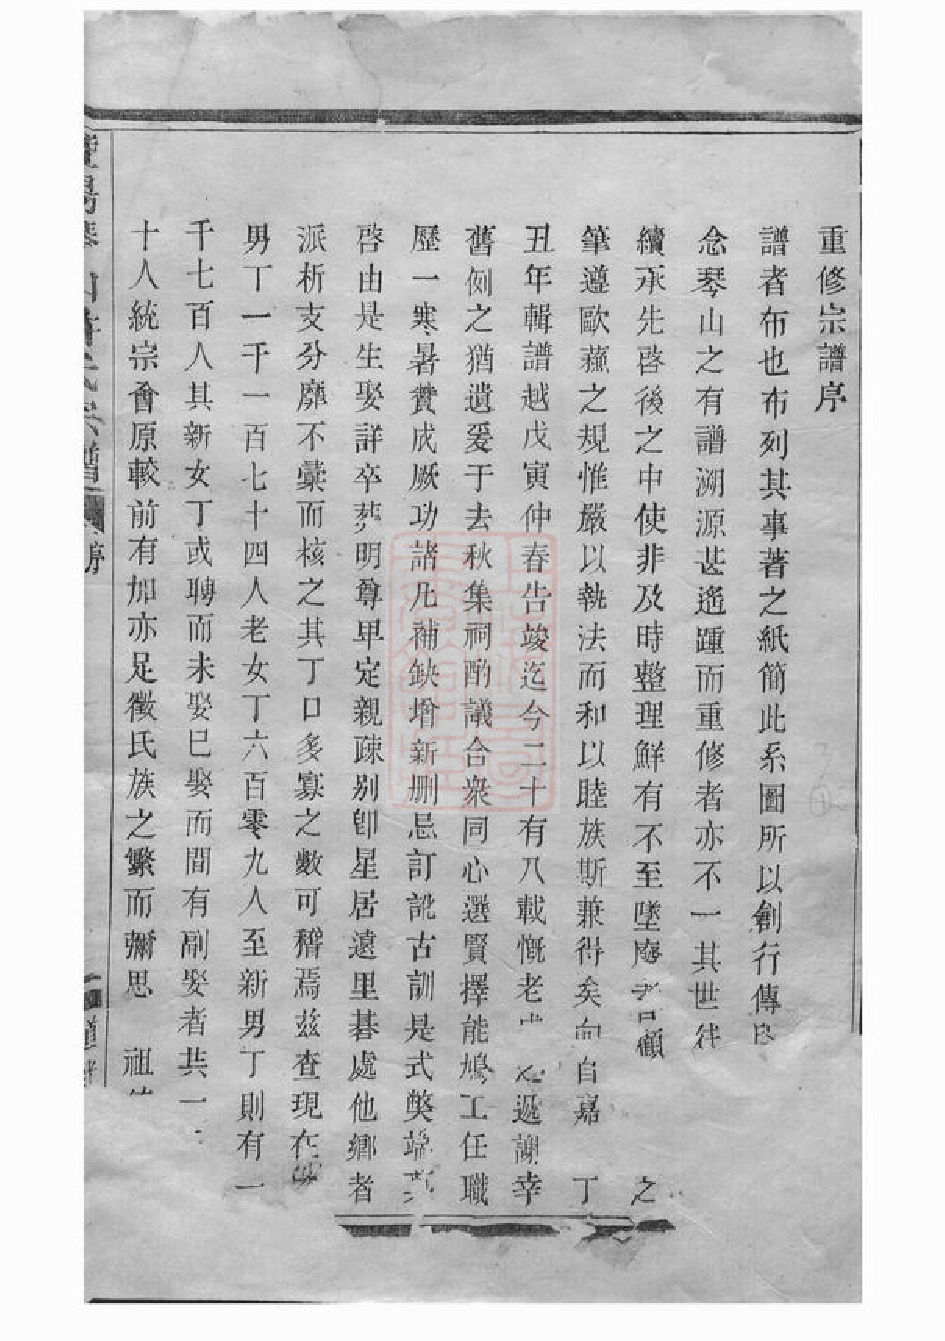 重修宗譜序
譜者布也布列其事著之紙簡此系圖所以創行傳
念琴山之有譜溯源甚遙踵而重修者亦不一其世
續承先啓後之中使非及時整理鮮有不至墜 顧 之
筆遵歐蘇之規惟嚴以執法而和以睦族斯兼得矣 自嘉 丁
丑年輯譜越戊寅仲春告竣迄今二十有八載慨老 遞謝幸
舊例之猶遺爰于去秋集祠酌議合衆同心選賢擇能鳩工任職
歷一寒暑賛成厥功諸凡補缺增新删忌訂訛古訓是式獘端
啓由是生娶詳卒葬明尊卑定親疎别卽星居遠里碁處他鄉者
派析支分靡不彙而核之其丁口多寡之數可稽焉茲查現在
男丁一千一百七十四人老女丁六百零九人至新男丁則有一
千七百人其新女丁或聘而未娶已娶而間有副娶者共一
十人統宗會原較前有加亦足徵氏族之繁而彌思 祖